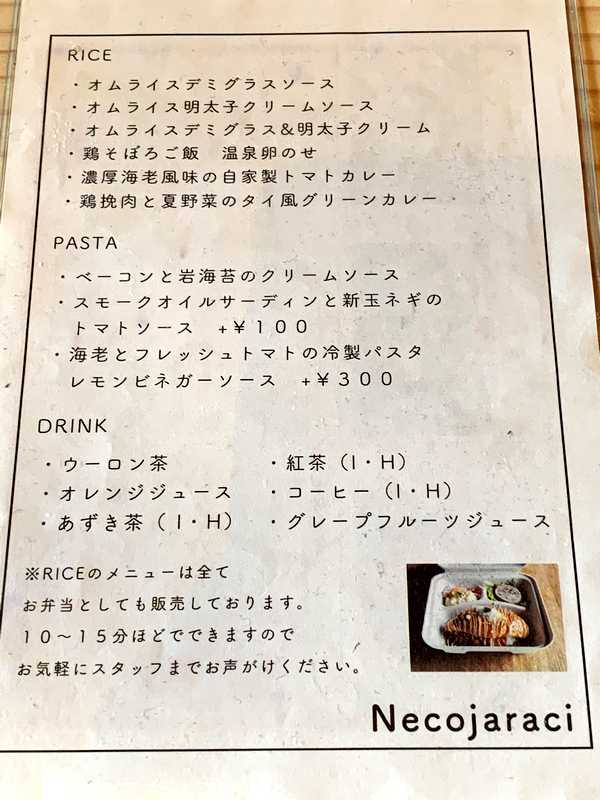 RICE
・オムライスデミグラスソース
・オムライス明太子クリームソース
・オムライスデミグラス&明太子クリーム
・鶏そぼろご飯　温泉卵のせ
・濃厚海老風味の自家製トマトカレー
・鶏挽肉と夏野菜のタイ風グリーンカレー
PASTA
・ベーコンと岩海苔のクリームソース
・スモークオイルサーディンと新玉ネギの
トマトソース　+￥１００
・海老とフレッシュトマトの冷製パスタ
レモンビネガーソース　+￥３００
DRINK
・ウーロン茶　・紅茶（I・H）
・オレンジジュース　・コーヒー（I・H）
・あずき茶（I・H）　・グレープフルーツジュース
※RICEのメニューは全て
お弁当としても販売しております。
１０〜１５分ほどでできますので
お気軽にスタッフまでお声がけください。
Necojaraci